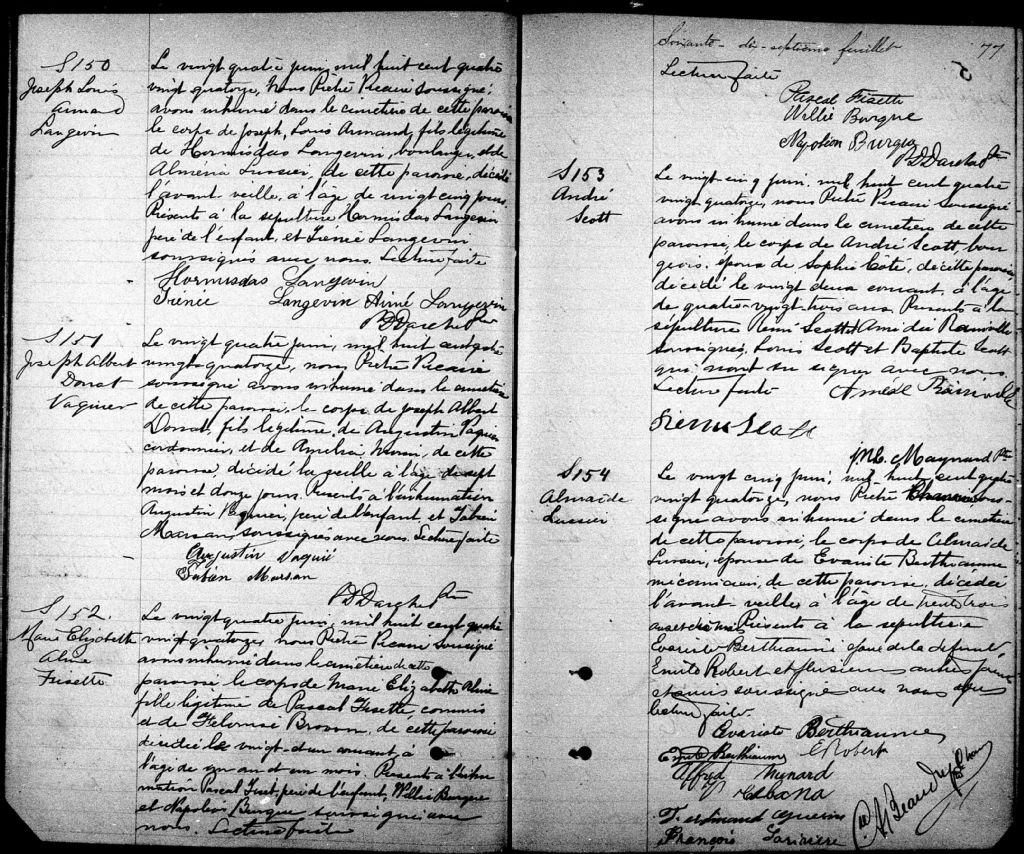 S150
Joseph Louis
Armand
Langevin
Le vingt quatre juin, mil huit cent quatre
vingt quatorze, Nous Prêtre Vicaire soussigné
avons inhumé dans le cimetière de cette paroisse
le corps de Joseph, Louis Armand, fils légitime
de Hormisdas Langevin, boulanger, et de
Almena Lussier, de cette paroisse, décédé
l'avant veille, à l'âge de vingt cinq jours.
Présents à la sépulture Hormisdas Langevin
père de l'enfant, et Irénée Langevin
soussignés avec nous. Lecture faite
Hormisdas Langevin
Irénée Langevin Aimé Langevin
S151
Joseph Albert
Donat
Vaginer
Le vingt quatre juin, mil huit cent quatre
vingt quatorze, nous Prêtre Vicaire
soussigné avons inhumé dans le cimetière
de cette paroisse, le corps de Joseph Albert
Donat, fils légitime, de Augustin
cordonnier, et de Amelia, de cette
paroisse décédé la veille à l'âge de sept
mois et douze jours. Présents à l'inhumation
Augustin, père de l'enfant, et Fabien
Marsan, soussignés avec nous. Lecture faite
Augustin
Fabien Marsan
S152.
Marie Elizabeth
Aline
Fisette
Le vingt quatre juin, mil huit cent quatre
vingt quatorze, nous Prêtre Vicaire soussigné
avons inhumé dans le cimetière de cette
paroisse le corps de Marie Elizabeth Aline
fille légitime de Pascal Fisette, commis
et de, de cette paroisse
décédée le vingt-un courant, à
l'âge de un an et un mois. Présents à l'inhu
mation Pascal, père de l'enfant, Willie Burque
et Napoléon Burque soussignés avec
nous. Lecture faite
Soixante-dix-septième feuillet 77
Lecture faite
Pascal Fisette
Willie Burque
Napoléon Burque
S153
André
Scott
Le vingt-cinq juin, mil huit cent quatre
vingt quatorze, nous Prêtre Vicaire soussigné
avons inhumé dans le cimetière de cette
paroisse, le corps de André Scott bour
geois, époux de Sophie Côté, de cette paroisse,
décédé le vingt deux courant, à l'âge
de quatre-vingt-trois ans. Présents à la
sépulture Rémi Scott et Amédée Rainville
soussignés, Louis Scott et Baptiste Scott
qui n'ont su signer avec nous.
Lecture faite Rainville
Scott
Maynard Ptre
S154
Almaïde
Lussier
Le vingt cinq juin, mil huit cent quatre
vingt quatorze, nous Prêtre sous-
signé avons inhumé dans le cimetière
de cette paroisse, le corps de Almaïde
Lussier, épouse de Evariste Berthiaume
mécanicien, de cette paroisse, décédée
l'avant-veille à l'âge de trente trois
Présents à la sépulture
Evariste Berthiaume époux de la défunte,
Emile Robert et plusieurs autres
soussignés avec nous
lecture faite.
Evariste Berthiaume
Emile Berthiaume E Robert
Alfred
François Larivière